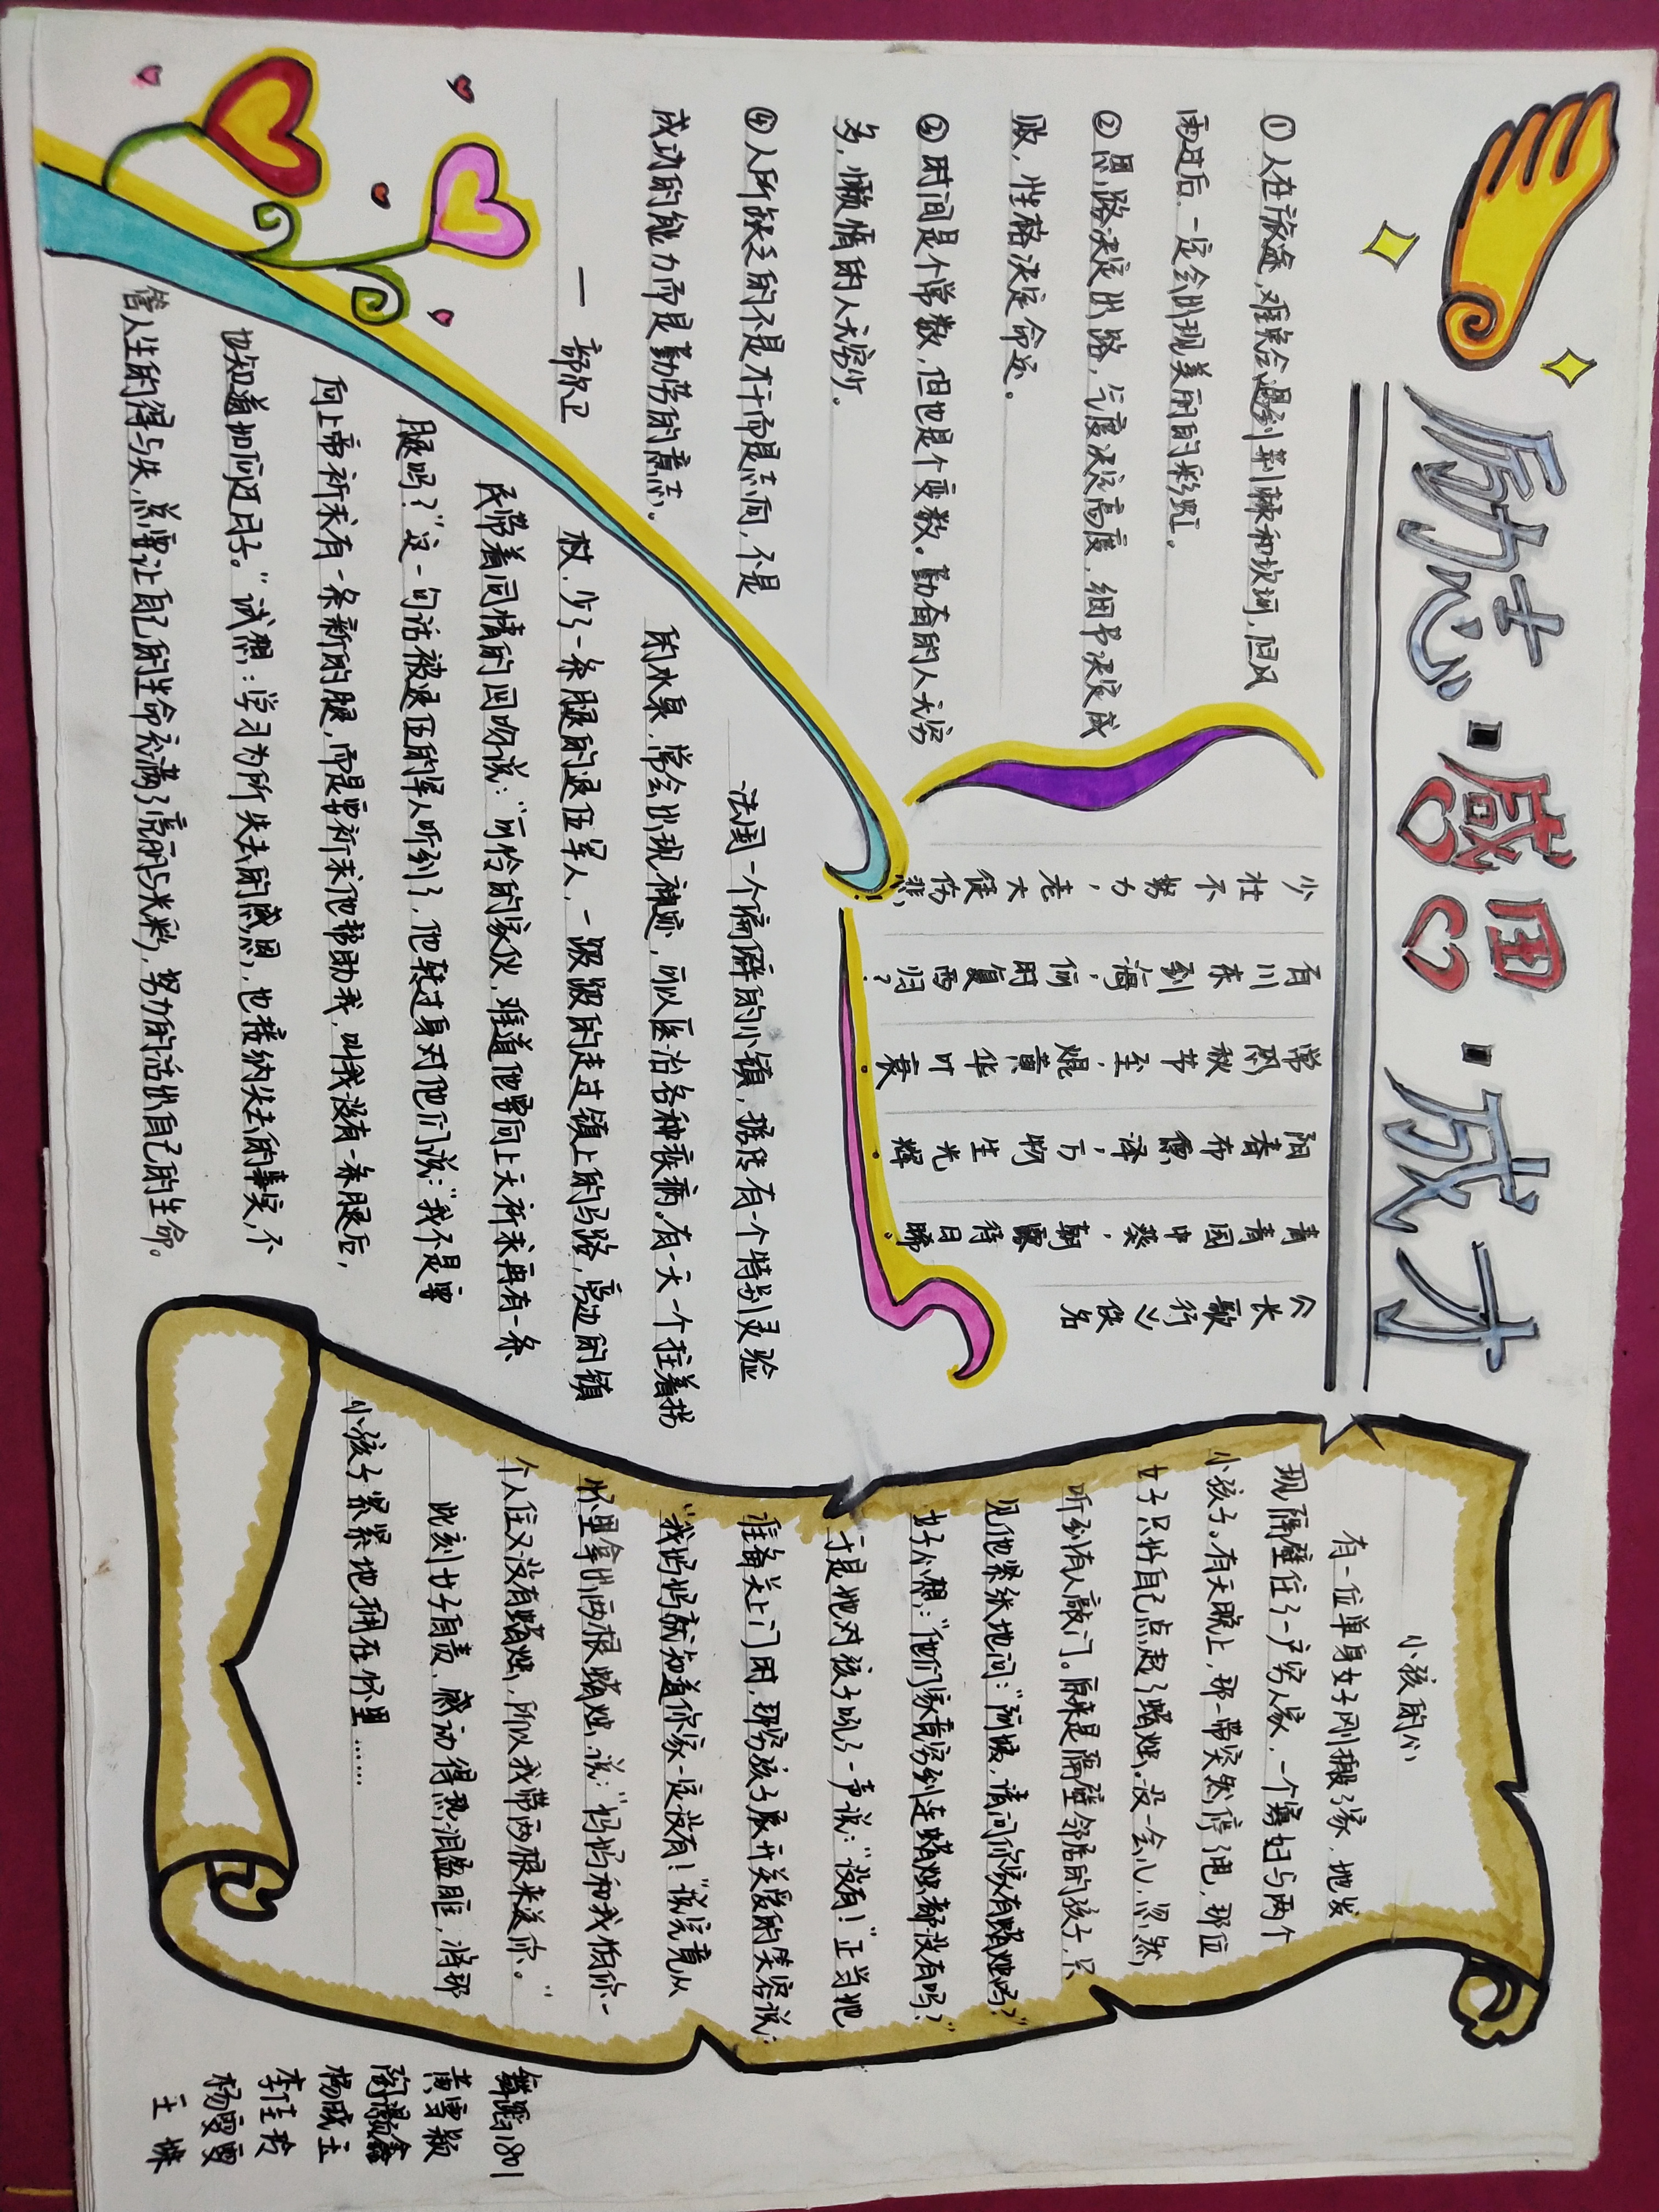 励志·感恩·成才
①人在旅途,难免会遇到荆棘和坎坷,但风
雨过后,一定会出现美丽的彩虹。
②思路决定出路,气度决定高度,细节决定成
败,性格决定命运。
③时间是个常数,但也是个变数。勤奋的人无穷
多,懒惰的人无穷少。
④人所缺乏的不是才干而是志向,不是
成功的能力而是勤劳的意志。
——部尔卫
《长歌行》佚名
青青园中葵,朝露待日晞。
阳春布德泽,万物生光辉。
常恐秋节至,焜黄华叶衰。
百川东到海,何时复西归?
少壮不努力,老大徒伤悲!
法国一个偏僻的小镇,据传有一个特别灵验
的水泉,常会出现神迹,可以医治各种疾病。有一天一个拄着拐
杖,少了一条腿的退伍军人,一跛一跛的走过镇上的马路,旁边的镇
民带着同情的回吻说:“可怜的家伙,难道他要向上天祈求再有一条
腿吗?”这一句话被退伍的军人听到了,他转过身对他们说:“我不是要
向上帝祈求有一条新的腿,而是要祈求他帮助我,叫我没有一条腿后,
也知道如何过日子。”试想:学习为所失去的感恩,也接纳失去的事实,不
管人生的得与失,总要让自己的生命充满了亮丽与光彩,努力的活出自己的生命。
小孩的心
有一位单身女子刚搬了家,她发
现隔壁住了一户穷人家,一个寡妇与两个
小孩子。有天晚上,那一带突然停了电,那位
女子只好自己点起了蜡烛。没一会儿,忽然
听到有人敲门。原来是隔壁邻居的孩子,只
见他紧张地问:“阿姨,请问你家有蜡烛吗?”
女子心想:“他们家竟穷到连蜡烛都没有吗?”
于是她对孩子吼了一声说:“没有!”正当她
准备关上门时,那穷孩子展开关爱的笑容说:
“我妈妈就知道你家一定没有!”说完竟从
怀里拿出两根蜡烛,说:“妈妈和我怕你一
个人住又没有蜡烛,所以我带两根来送你。”
此刻女子自责、感动得热泪盈眶,将那
小孩子紧紧地拥在怀里……
舞蹈1801
黄雪颖
陶灏鑫
杨成玉
李佳玲
杨雯雯
王姝